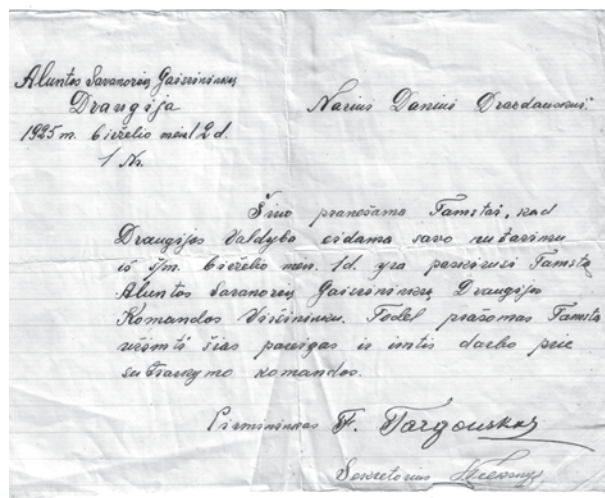 Aluntos Savanorių Gaisrininkų
Draugija
1925 m. birželio mėn 12 d.
1 Nr.
Nariui Daniui Drazdauskui.
Šiuo pranešama Tamstai, kad
Draugijos Valdyba eidama savo nutarimu
iš š/m. birželio mėn. 1 d. yra paskirusi Tamstą
Aluntos Savanorių Gaisrininkų Draugijos
Komandos Viršininku. Todėl prašomas Tamsta
užimti šias pareigas ir imtis darbo prie
sutvarkymo komandos.
Pirmininkas F. Targonskas
Sekretorius